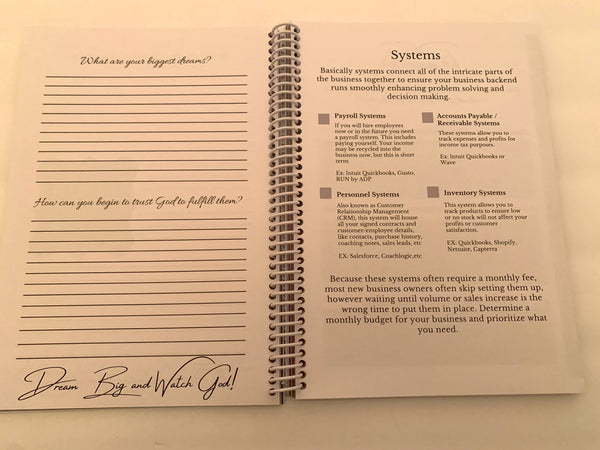 What are your biggest dreams?
How can you begin to trust God to fulfill them?
Dream Big and Watch God!
Systems
Basically systems connect all of the intricate parts of
the business together to ensure your business backend
runs smoothly enhancing problem solving and
decision making.
Payroll Systems
If you will hire employees
now or in the future you need
a payroll system. This includes
paying yourself. Your income
may be recycled into the
business now, but this is short
term
Ex: Intuit Quickbooks, Gusto,
RUN by ADP
Accounts Payable /
Receivable Systems
These systems allow you to
track expenses and profits for
income tax purposes.
Ex: Intuit Quickbooks or
Wave
Personnel Systems
Also known as Customer
Relationship Management
(CRM), this system will house
all your signed contracts and
customer/employee details,
like contacts, purchase history,
coaching notes, sales leads, etc
EX: Salesforce, Coachlogic,etc
Inventory Systems
This system allows you to
track products to ensure low
or no stock will not affect your
profits or customer
satisfaction.
EX: Quickbooks, Shopify,
Netsuite, Capterra
Because these systems often require a monthly fee,
most new business owners often skip setting them up,
however waiting until volume or sales increase is the
wrong time to put them in place. Determine a
monthly budget for your business and prioritize what
you need.